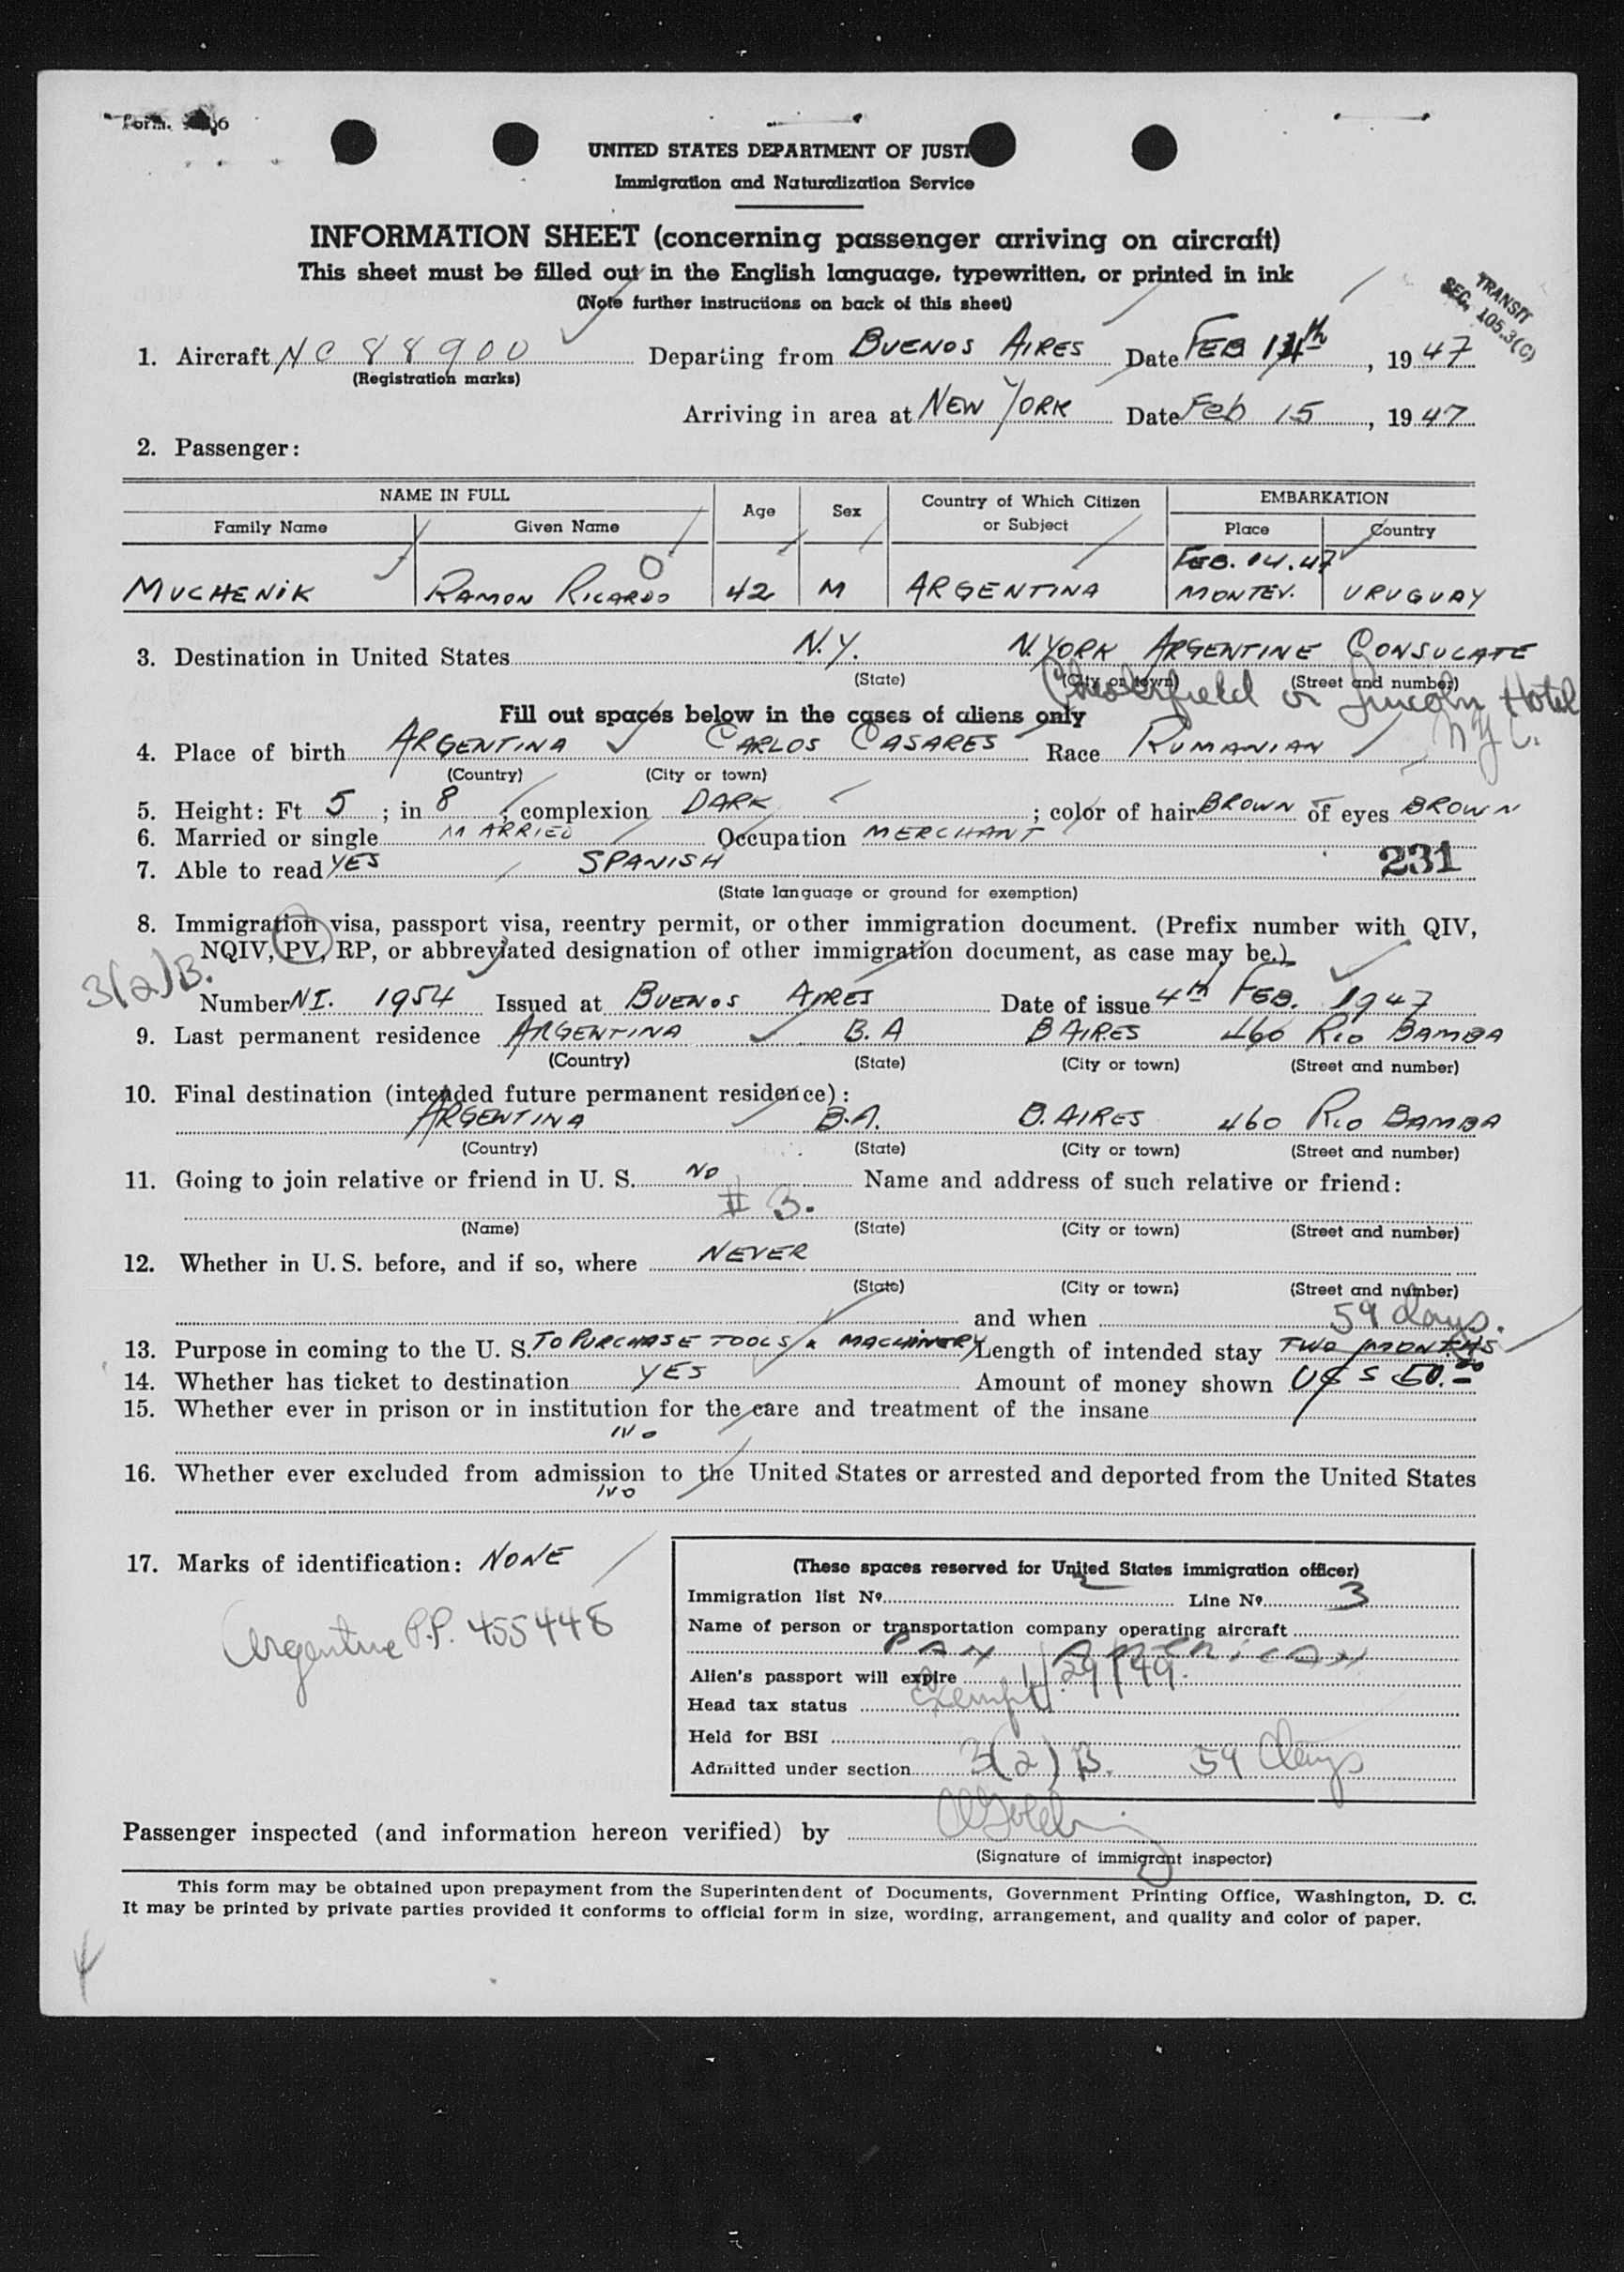 Form.
UNITED STATES DEPARTMENT OF JUSTI
Immigration and Naturalization Service
INFORMATION SHEET (concerning passenger arriving on aircraft)
This sheet must be filled out in the English language, typewritten, or printed in ink
(Note further instructions on back of this sheet)
TRANSIT
SEC. 105.3(C)
1. Aircraft NC 88900 Departing from BUENOS AIRES Date FEB 14th, 1947
(Registration marks)
Arriving in area at NEW YORK Date Feb 15, 1947
2. Passenger:
NAME IN FULL Age Sex Country of Which Citizen or Subject EMBARKATION
Family Name Given Name Place Country
FEB. 14.47
MUCHENIK RAMON RICARDO 42 M ARGENTINA MONTEV. URUGUAY
3. Destination in United States N.Y. N.YORK ARGENTINE CONSULATE
(State) (City or town) (Street and number)
Chesterfield or Lincoln Hotel
N.Y.C.
Fill out spaces below in the cases of aliens only
4. Place of birth ARGENTINA CARLOS CASARES Race RUMANIAN
(Country) (City or town)
5. Height: Ft 5 ; in 8 ; complexion DARK ; color of hair BROWN of eyes BROWN
6. Married or single MARRIED Occupation MERCHANT
7. Able to read YES SPANISH 231
(State language or ground for exemption)
8. Immigration visa, passport visa, reentry permit, or other immigration document. (Prefix number with QIV,
NQIV, PV, RP, or abbreviated designation of other immigration document, as case may be.)
3(2)B.
Number NI. 1954 Issued at BUENOS AIRES Date of issue 4th FEB. 1947
9. Last permanent residence ARGENTINA B.A BAIRES 460 RIO BAMBA
(Country) (State) (City or town) (Street and number)
10. Final destination (intended future permanent residence):
ARGENTINA B.A. B.AIRES 460 RIO BAMBA
(Country) (State) (City or town) (Street and number)
11. Going to join relative or friend in U. S. NO Name and address of such relative or friend:
II 3.
(Name) (State) (City or town) (Street and number)
12. Whether in U. S. before, and if so, where NEVER
(State) (City or town) (Street and number)
and when 59 days.
13. Purpose in coming to the U. S. TO PURCHASE TOOLS & MACHINERY Length of intended stay TWO MONTHS
14. Whether has ticket to destination YES Amount of money shown U$S 50.00
15. Whether ever in prison or in institution for the care and treatment of the insane
NO
16. Whether ever excluded from admission to the United States or arrested and deported from the United States
NO
17. Marks of identification: NONE
Argentine P.P. 455448
(These spaces reserved for United States immigration officer)
Immigration list No. 2 Line No. 3
Name of person or transportation company operating aircraft
PAN AMERICAN
Alien's passport will expire 1/29/49.
Head tax status Exempt
Held for BSI
Admitted under section 3(2)B. 59 days
Passenger inspected (and information hereon verified) by
(Signature of immigrant inspector)
This form may be obtained upon prepayment from the Superintendent of Documents, Government Printing Office, Washington, D. C.
It may be printed by private parties provided it conforms to official form in size, wording, arrangement, and quality and color of paper.